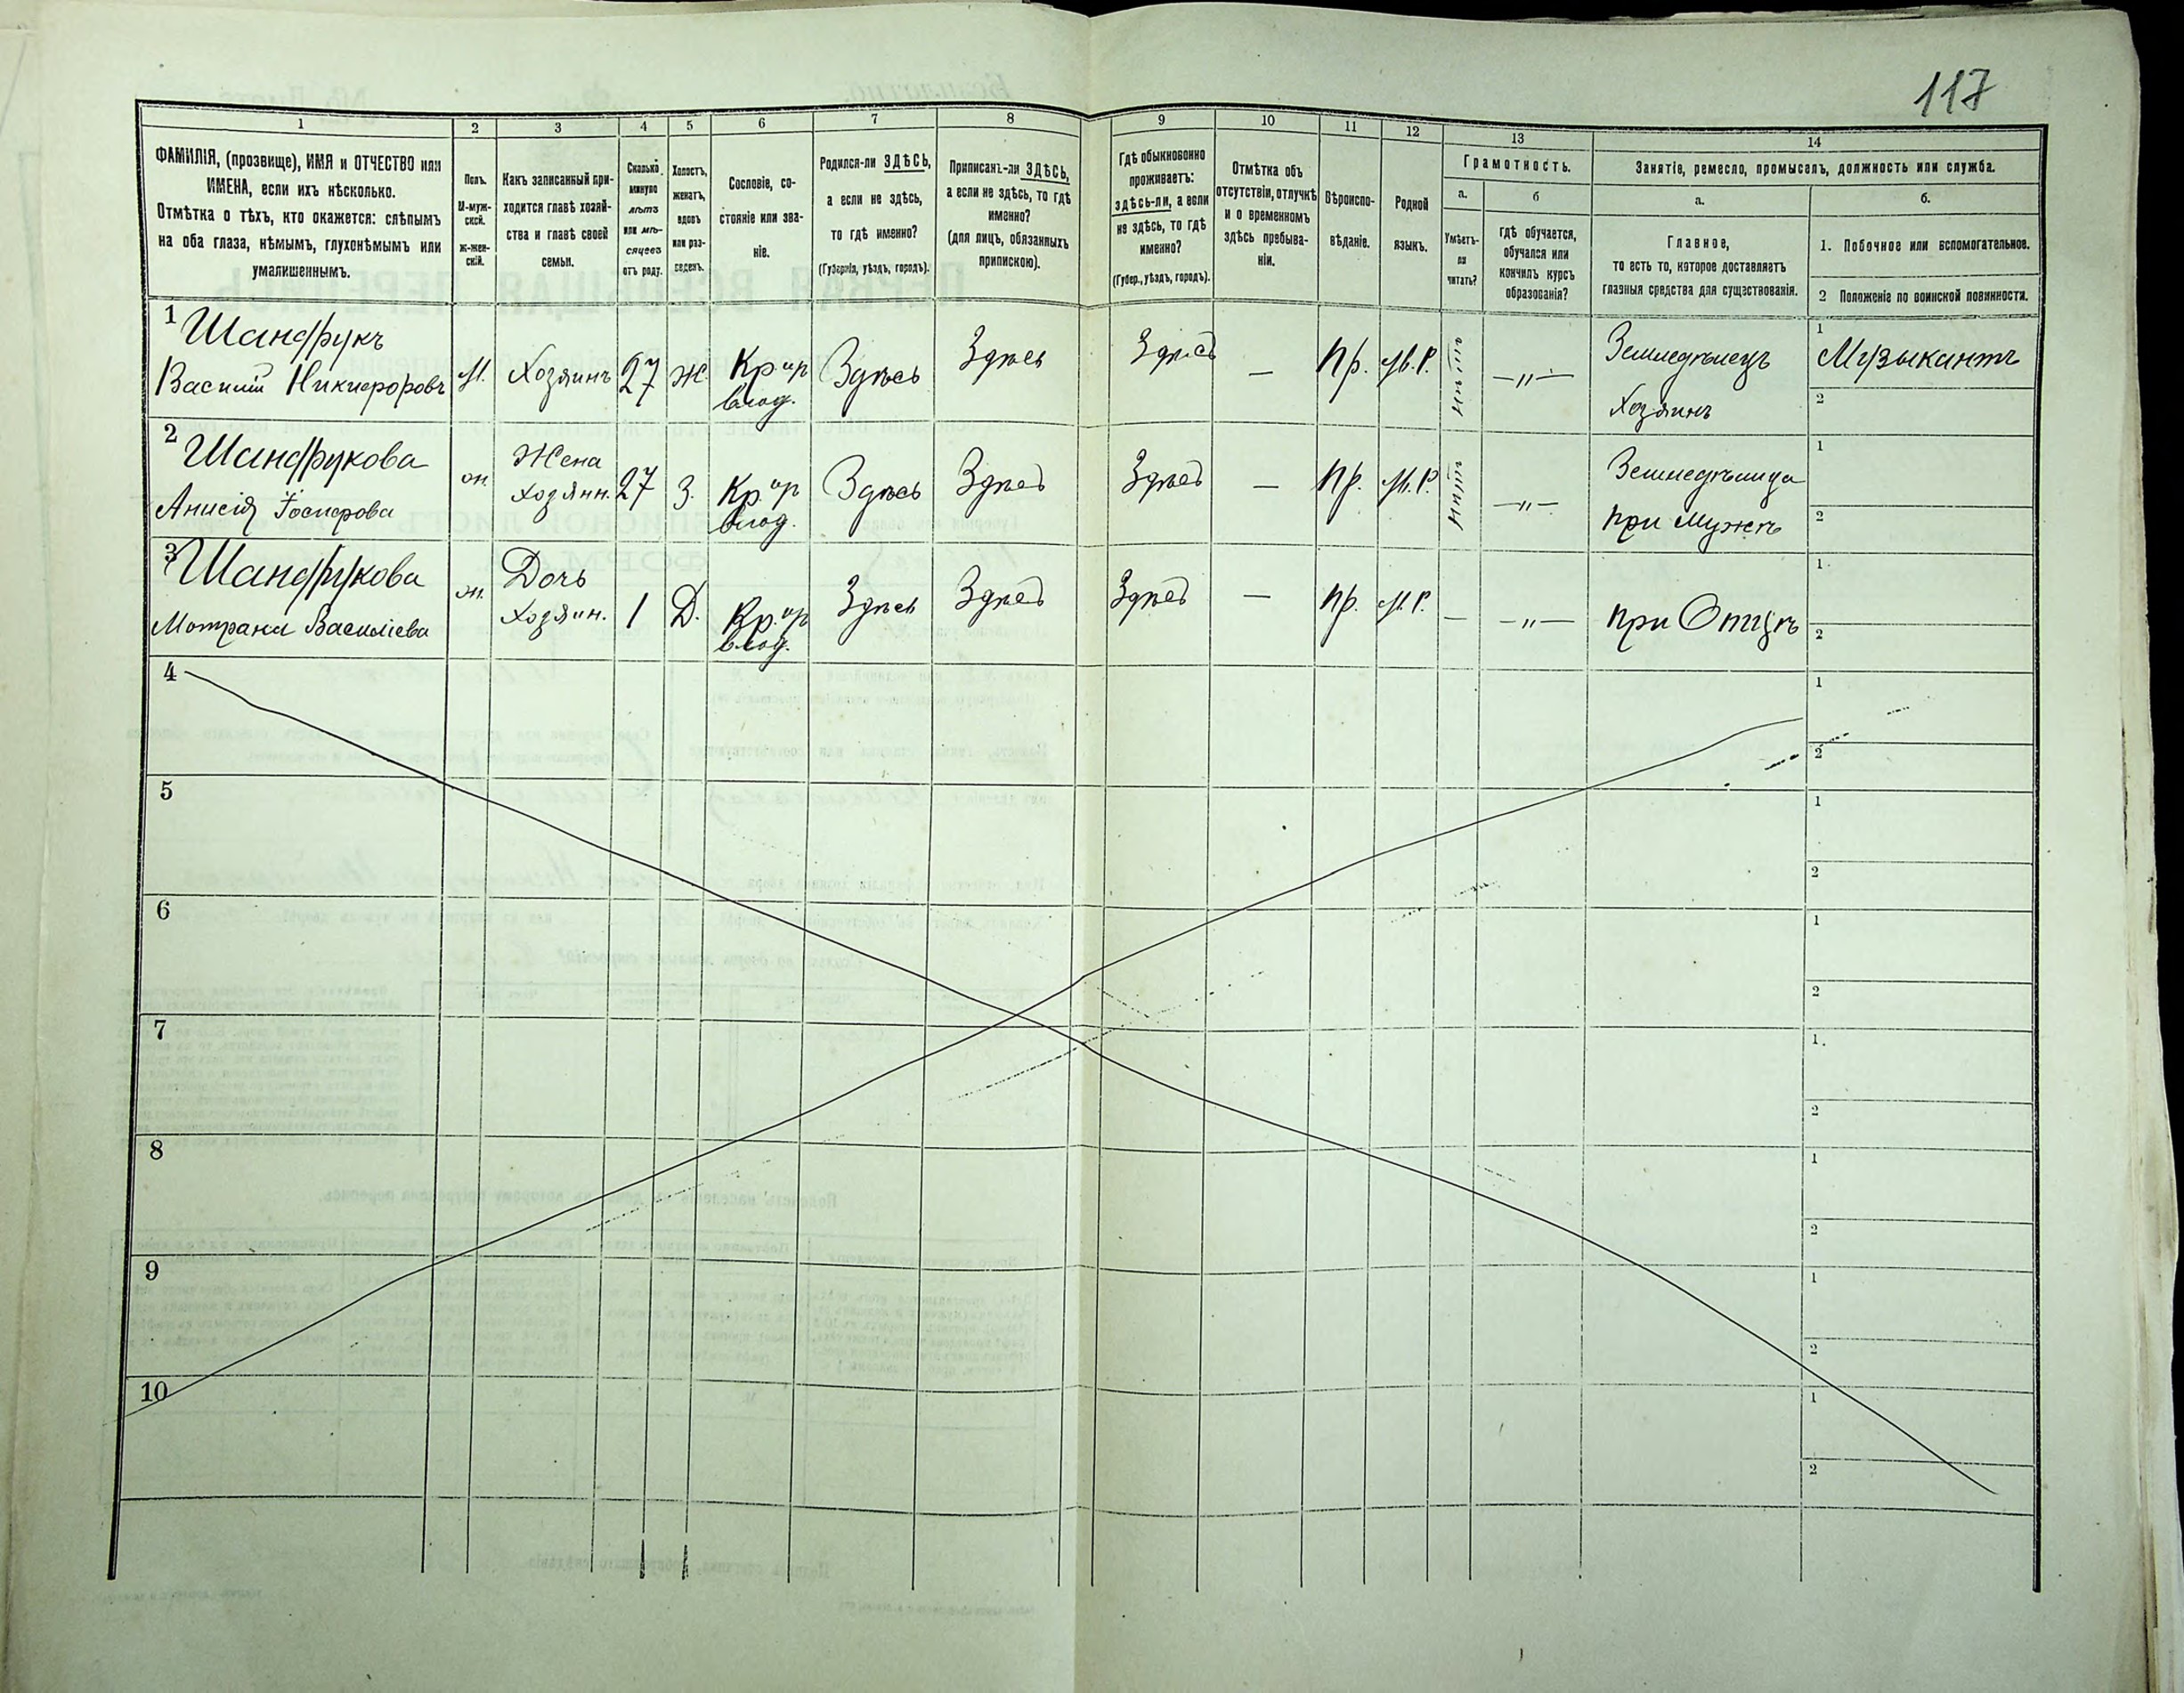 117
1 2 3 4 5 6 7 8 9 10 11 12 13 14
ФАМИЛІЯ, (прозвище), ИМЯ и ОТЧЕСТВО или
ИМЕНА, если ихъ нѣсколько.
Отмѣтка о тѣхъ, кто окажется: слѣпымъ
на оба глаза, нѣмымъ, глухонѣмымъ или
умалишеннымъ.
Полъ.
М-муж-
ской.
ж-жен-
скій.
Какъ записанный при-
ходится главѣ хозяй-
ства и главѣ своей
семьи.
Сколько
минуло
лѣтъ
или мѣ-
сяцевъ
отъ роду.
Холостъ,
женатъ,
вдовъ
или раз-
веденъ.
Сословіе, со-
стояніе или зва-
ніе.
Родился-ли ЗДѢСЬ,
а если не здѣсь,
то гдѣ именно?
(Губернія, уѣздъ, городъ).
Приписанъ-ли ЗДѢСЬ,
а если не здѣсь, то гдѣ
именно?
(для лицъ, обязанныхъ
припискою).
Гдѣ обыкновенно
проживаетъ:
здѣсь-ли, а если
не здѣсь, то гдѣ
именно?
(Губер., уѣздъ, городъ).
Отмѣтка объ
отсутствіи, отлучкѣ
и о временномъ
здѣсь пребыва-
ніи.
Вѣроиспо-
вѣданіе.
Родной
языкъ.
Грамотность.
а.
Умѣетъ-
ли
читать?
б
гдѣ обучается,
обучался или
кончилъ курсъ
образованія?
Занятіе, ремесло, промыселъ, должность или служба.
а.
Главное,
то есть то, которое доставляетъ
главныя средства для существованія.
б.
1. Побочное или вспомогательное.
2 Положеніе по воинской повинности.
1 Шандрукъ
Василій Никифоровъ
М.
Хозяинъ
27
Ж.
Кр. ир
влад.
Здѣсь
Здѣсь
Здѣсь
—
Пр.
М. Р.
Нѣтъ
—„—
Земледѣлецъ
Хозяинъ
1
Музыкантъ
2
2 Шандрукова
Анисія Іосифова
ж.
Жена
Хозяин.
27
З.
Кр. ир
влад.
Здѣсь
Здѣсь
Здѣсь
—
Пр.
М. Р.
Нѣтъ
—„—
Земледѣлица
при Мужѣ
1
2
3 Шандрукова
Мотрана Василіева
ж.
Дочь
Хозяин.
1
Д.
Кр. ир
влад.
Здѣсь
Здѣсь
Здѣсь
—
Пр.
М. Р.
—
—„—
при Отцѣ
1
2
4
1
2
5
1
2
6
1
2
7
1.
2
8
1
2
9
1
2
10
1
2